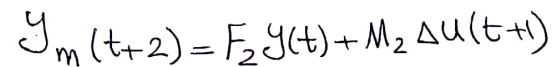 y_m(t+2) = F_2 y(t) + M_2 Δu(t+1)